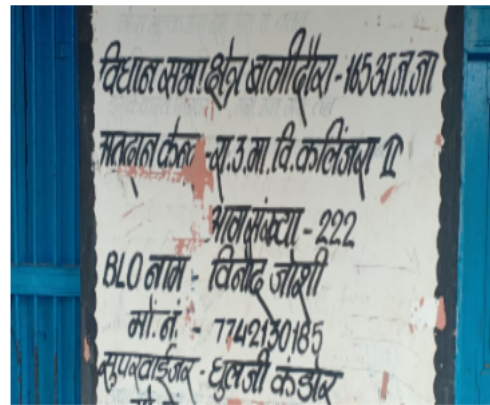 विधान सभा क्षेत्र बागीदौरा - 165 अ.ज.जा
मतदान केन्द्र - रा.उ.मा.वि. कलिंजरा II
भाग संख्या - 222
BLO नाम - विनोद जोशी
मों.नं. - 7742130185
सुपरवाईजर - धुलजी कंडोर